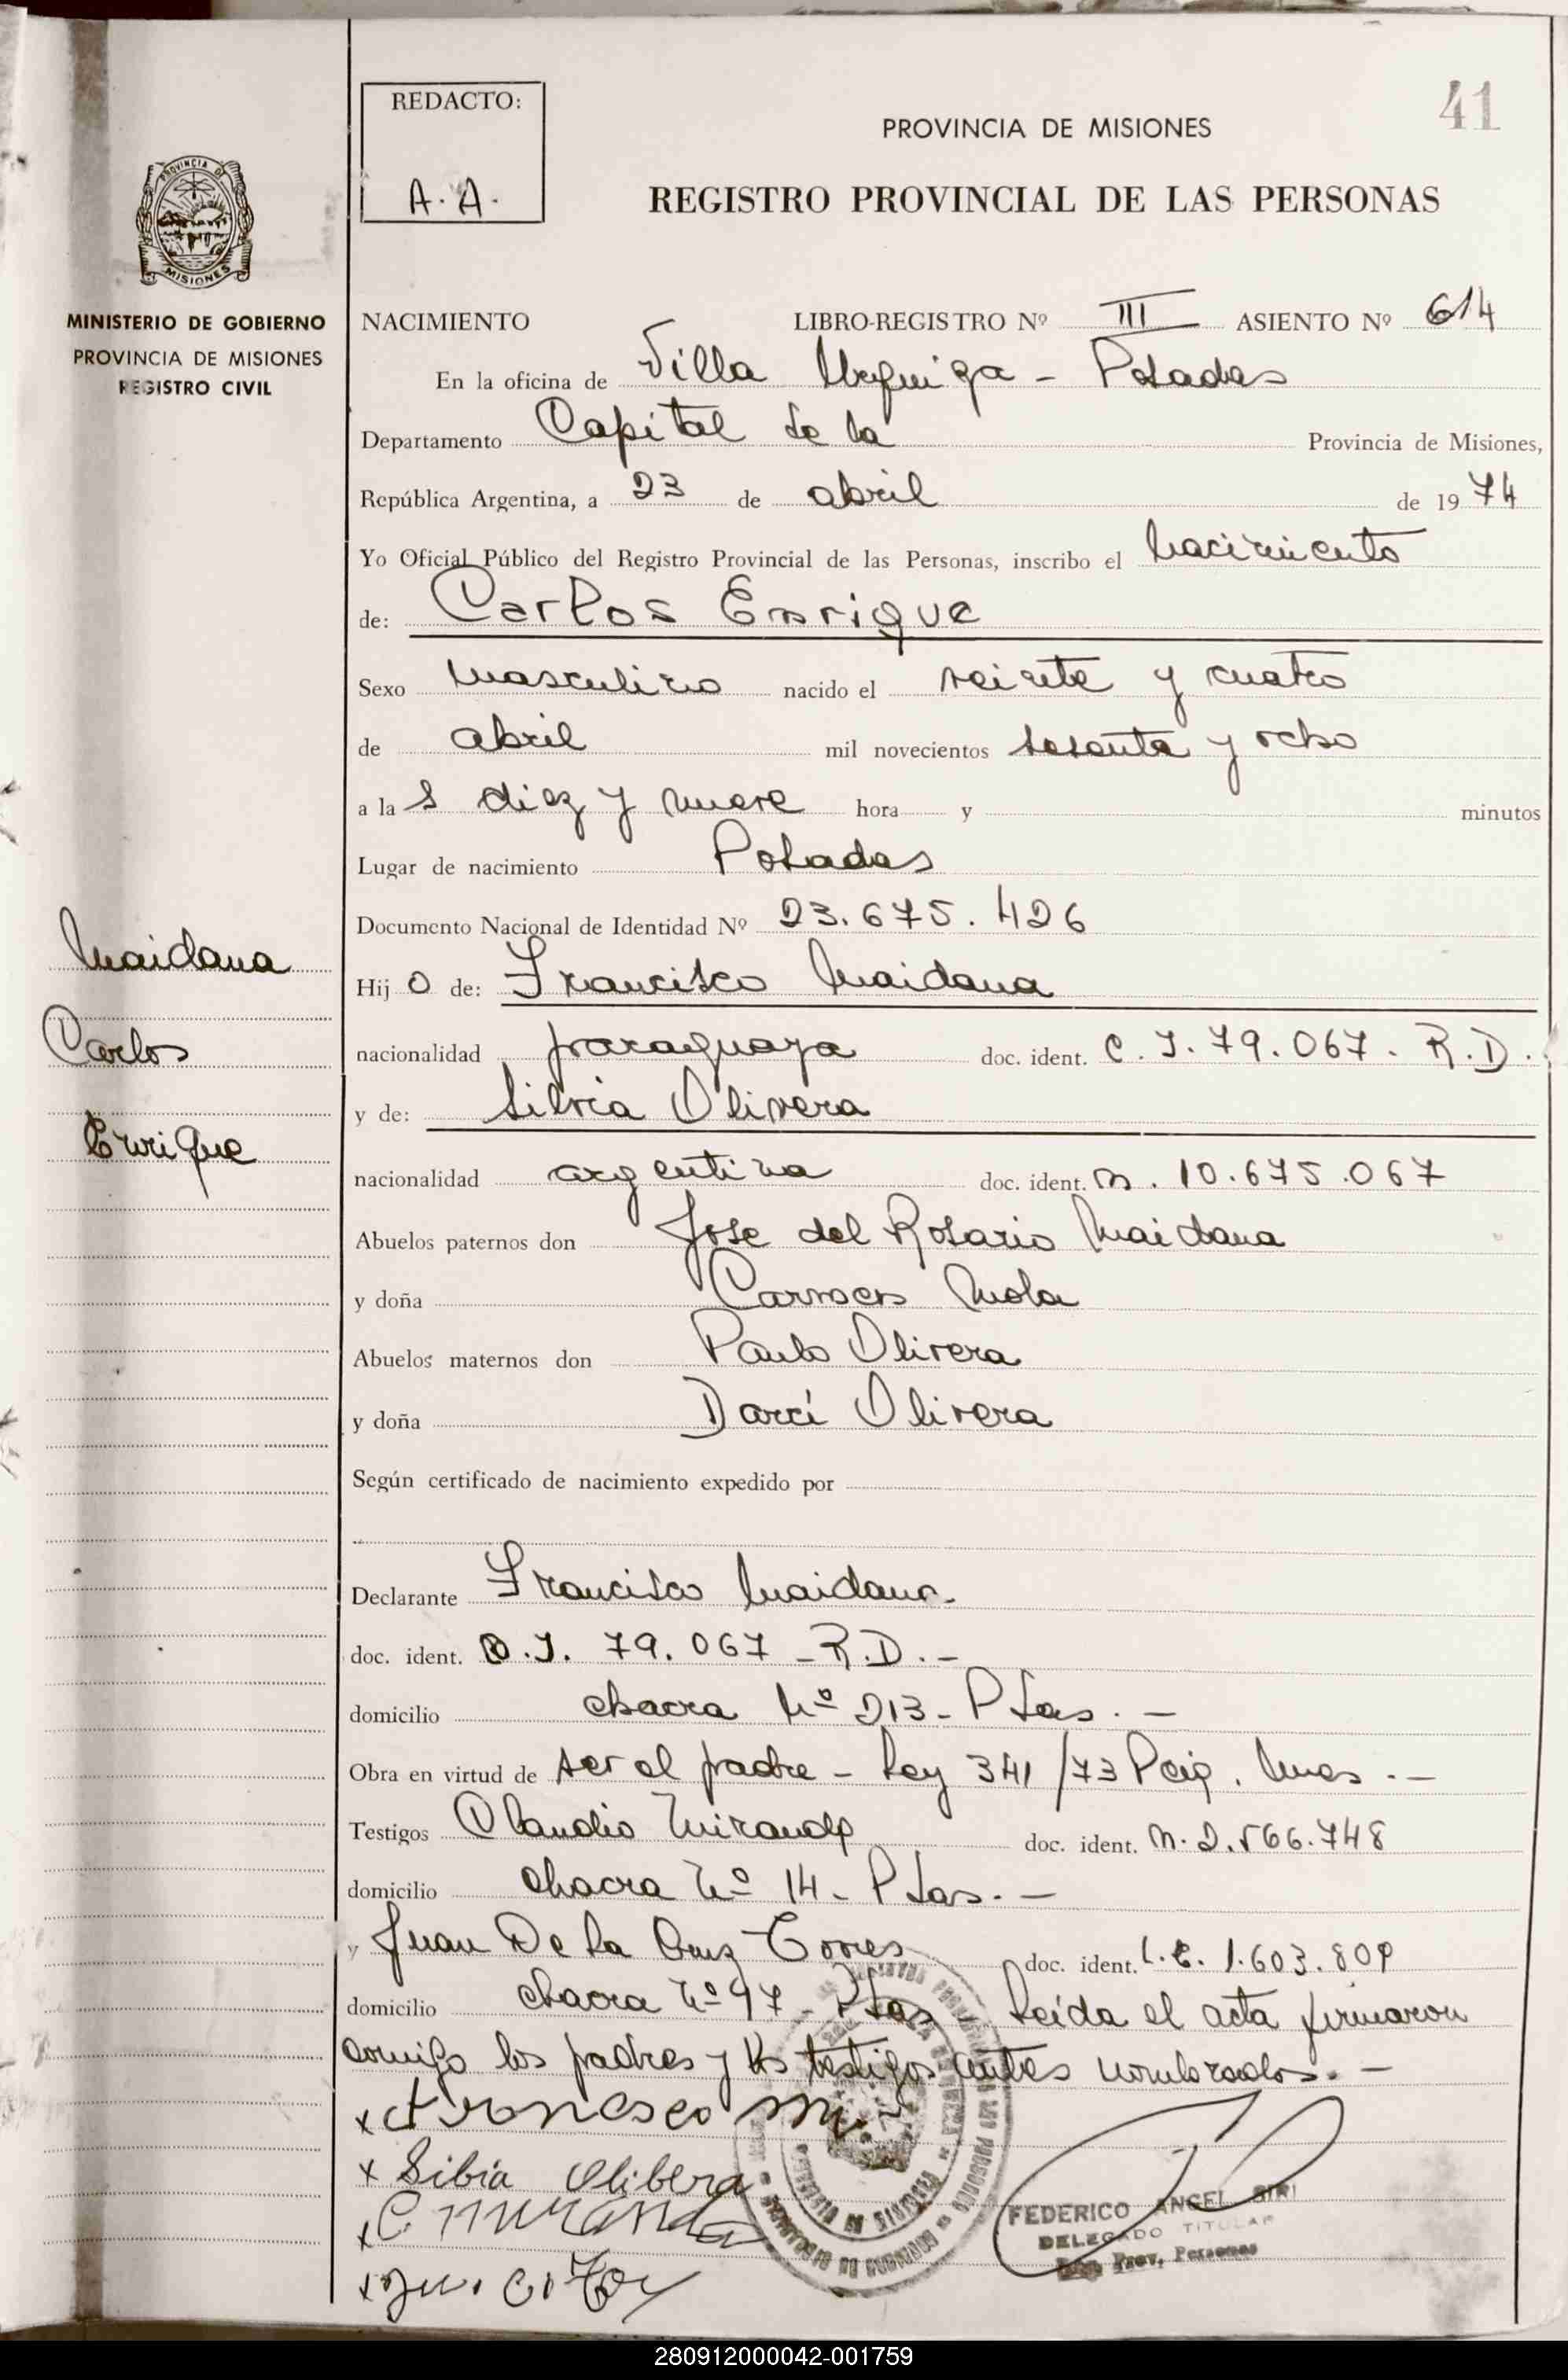 41
REDACTO:
A. A.
PROVINCIA DE MISIONES
REGISTRO PROVINCIAL DE LAS PERSONAS
PROVINCIA DE
MISIONES
MINISTERIO DE GOBIERNO
PROVINCIA DE MISIONES
REGISTRO CIVIL
NACIMIENTO LIBRO-REGISTRO Nº III ASIENTO Nº 614
En la oficina de Villa Urquiza - Posadas
Departamento Capital de la Provincia de Misiones,
República Argentina, a 23 de abril de 1974
Yo Oficial Público del Registro Provincial de las Personas, inscribo el nacimiento
de: Carlos Enrique
Sexo masculino nacido el veinte y cuatro
de abril mil novecientos sesenta y ocho
a las diez y nueve hora y minutos
Lugar de nacimiento Posadas
Documento Nacional de Identidad Nº 23.675.426
Maidana
Carlos
Enrique
Hijo de: Francisco Maidana
nacionalidad paraguaya doc. ident. C. I. 79.067. R.D.
y de: Silvia Olivera
nacionalidad argentina doc. ident. M. 10.675.067
Abuelos paternos don Jose del Rosario Maidana
y doña Carmen Mola
Abuelos maternos don Paulo Olivera
y doña Darci Olivera
Según certificado de nacimiento expedido por
Declarante Francisco Maidana.
doc. ident. C.I. 79.067 - R.D. -
domicilio chacra Nº 213 - Ptas. -
Obra en virtud de ser el padre - Ley 341/73
Testigos Claudio Miranda doc. ident. M. 2.566.748
domicilio chacra Nº 14 - Ptas. -
y Juan De la Cruz Torres doc. ident. L.E. 1.603.809
domicilio chacra Nº 97 - Ptas Leída el acta firmaron
comigo los padres y los testigos antes nombrados. -
x Francisco
x Silbia Olibera
x C. Miranda
x
FEDERICO ANGEL SIRI
DELEGADO TITULAR
Prov. Personas
280912000042-001759